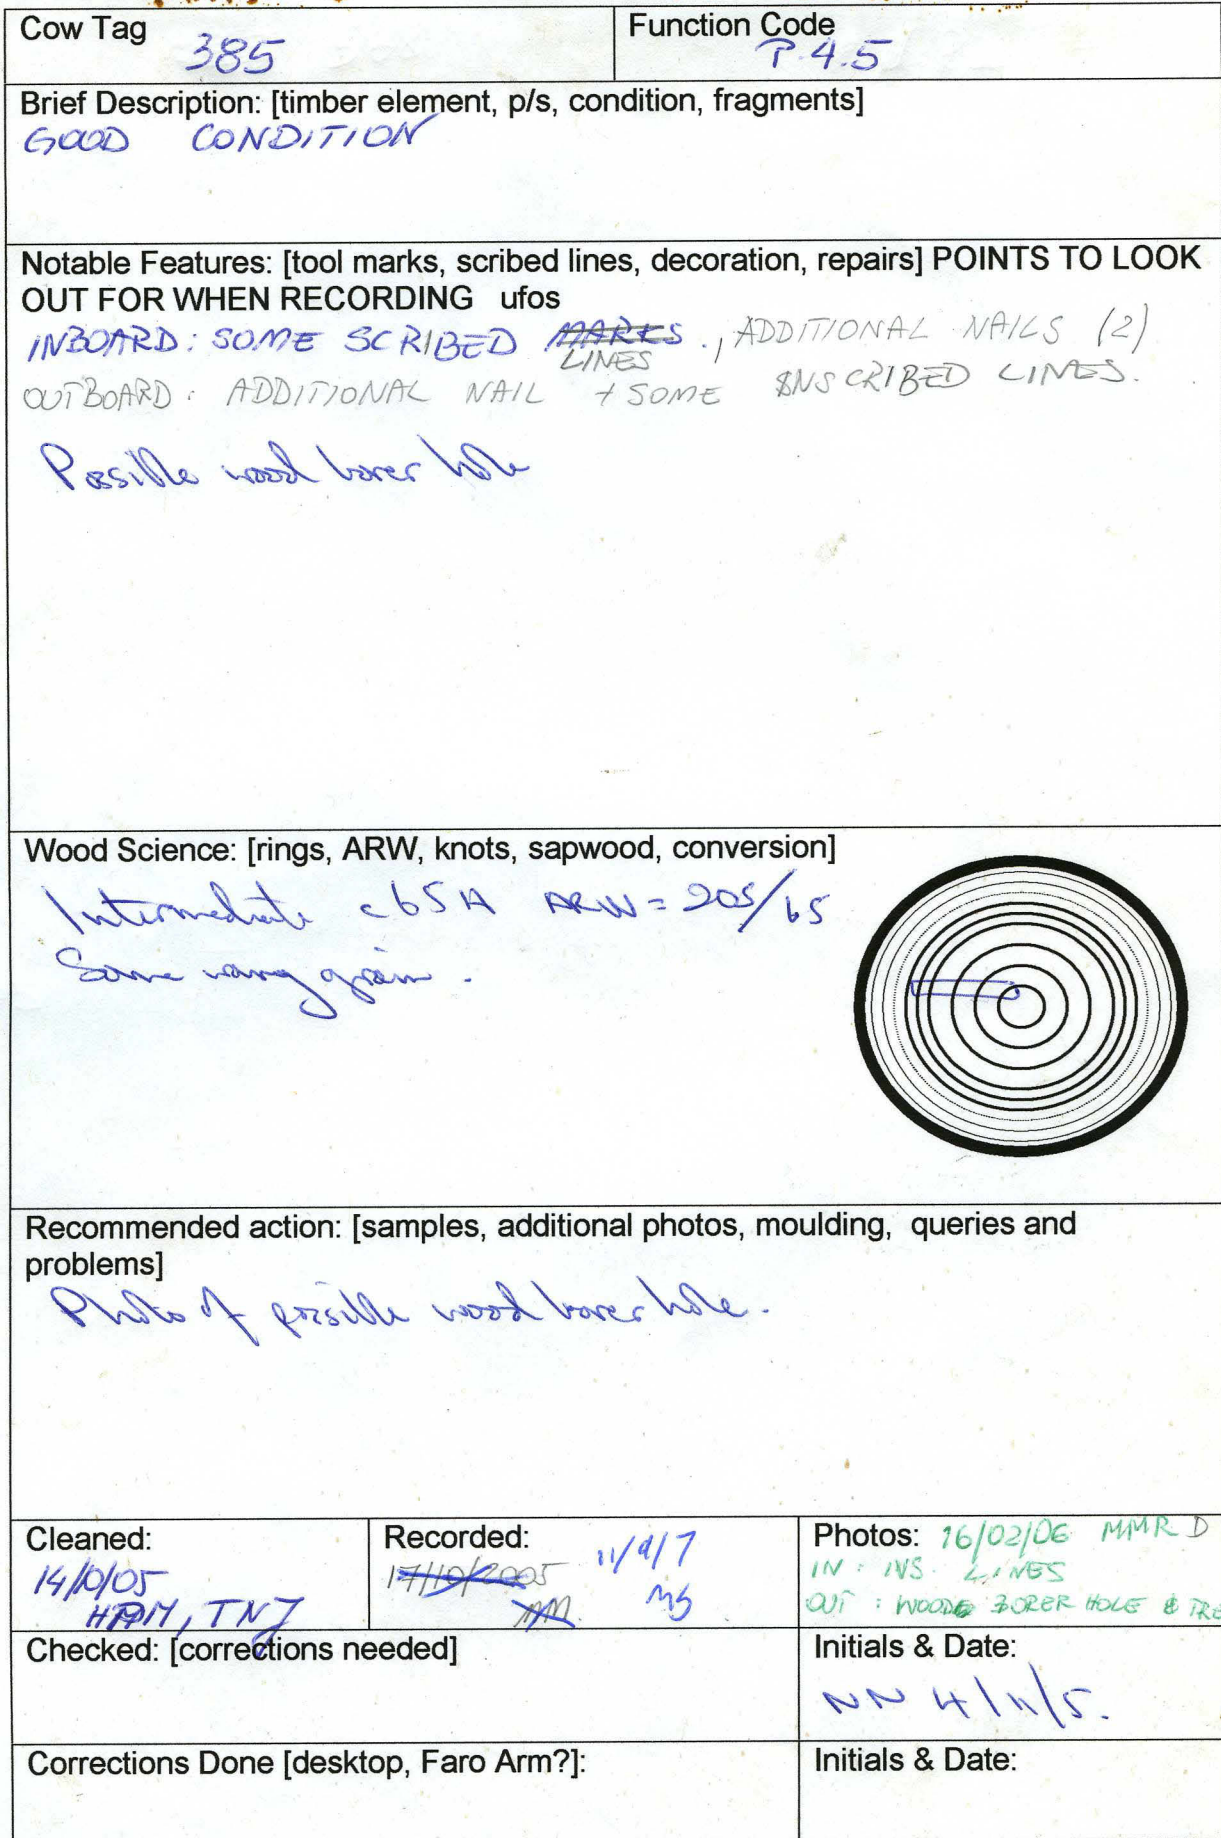 Cow Tag
385
Function Code
P.4.5
Brief Description: [timber element, p/s, condition, fragments]
GOOD CONDITION
Notable Features: [tool marks, scribed lines, decoration, repairs] POINTS TO LOOK
OUT FOR WHEN RECORDING ufos
INBOARD: SOME SCRIBED MARKS., ADDITIONAL NAILS (2)
LINES
OUTBOARD: ADDITIONAL NAIL + SOME INSCRIBED LINES.
Possible wood borer hole
Wood Science: [rings, ARW, knots, sapwood, conversion]
Intermediate c65A ARW = 205/65
Some wavy grain.
Recommended action: [samples, additional photos, moulding, queries and
problems]
Photo of possible wood borer hole.
Cleaned:
14/10/05
TNJ
Recorded:
11/9/7
17/10/2005
MS
Photos: 16/02/06 MMR D
IN: INS. LINES
OUT: WOOD BORER HOLE & TRE
Checked: [corrections needed]
Initials & Date:
NN 4/11/5.
Corrections Done [desktop, Faro Arm?]:
Initials & Date: